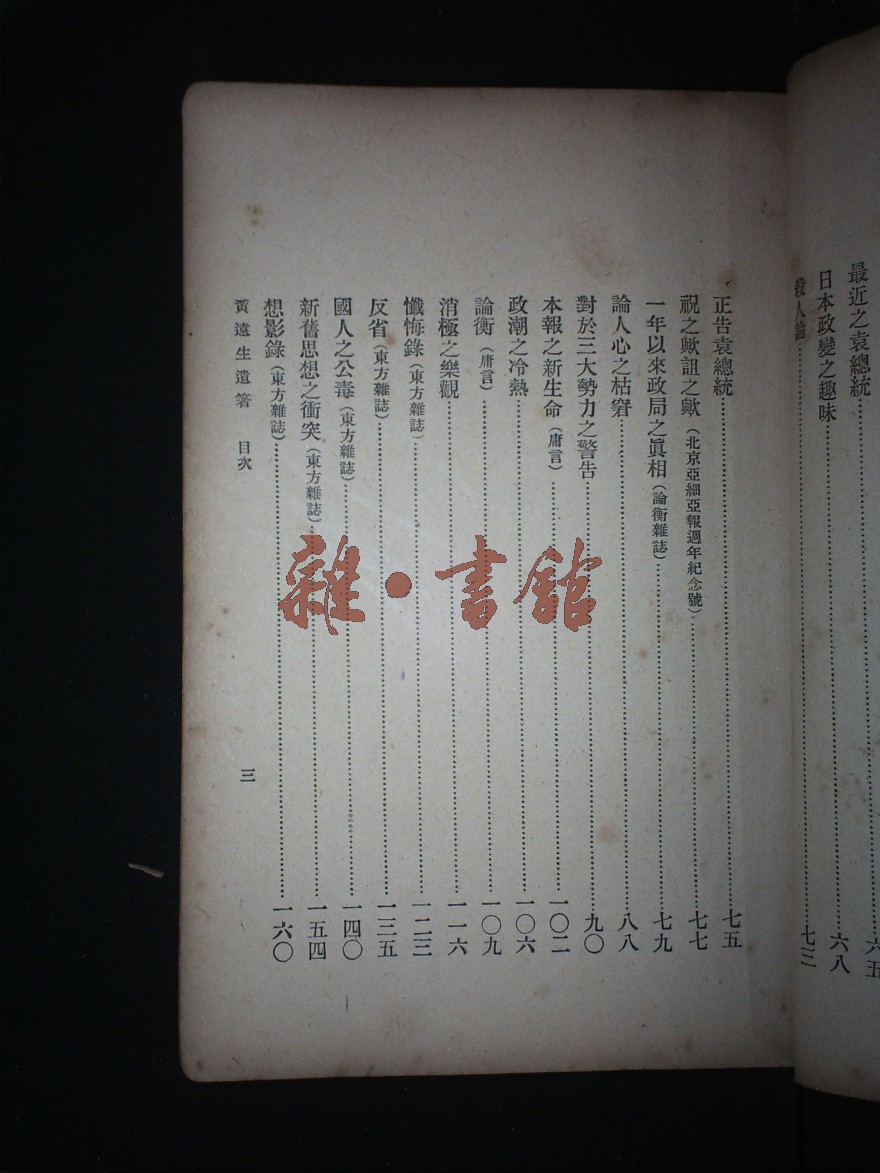 最近之袁總統……六五
日本政變之趣味……六八
殺人論……七三
正告袁總統……七五
祝之歟詛之歟（北京亞細亞報週年紀念號）……七七
一年以來政局之眞相（論衡雜誌）……七九
論人心之枯窘……八八
對於三大勢力之警告……九〇
本報之新生命（庸言）……一〇二
政潮之冷熱……一〇六
論衡（庸言）……一〇九
消極之樂觀……一一六
懺悔錄（東方雜誌）……一二三
反省（東方雜誌）……一三五
國人之公毒（東方雜誌）……一四〇
新舊思想之衝突（東方雜誌）……一五四
想影錄（東方雜誌）……一六〇
黃遠生遺著 目次 三
雜·書館